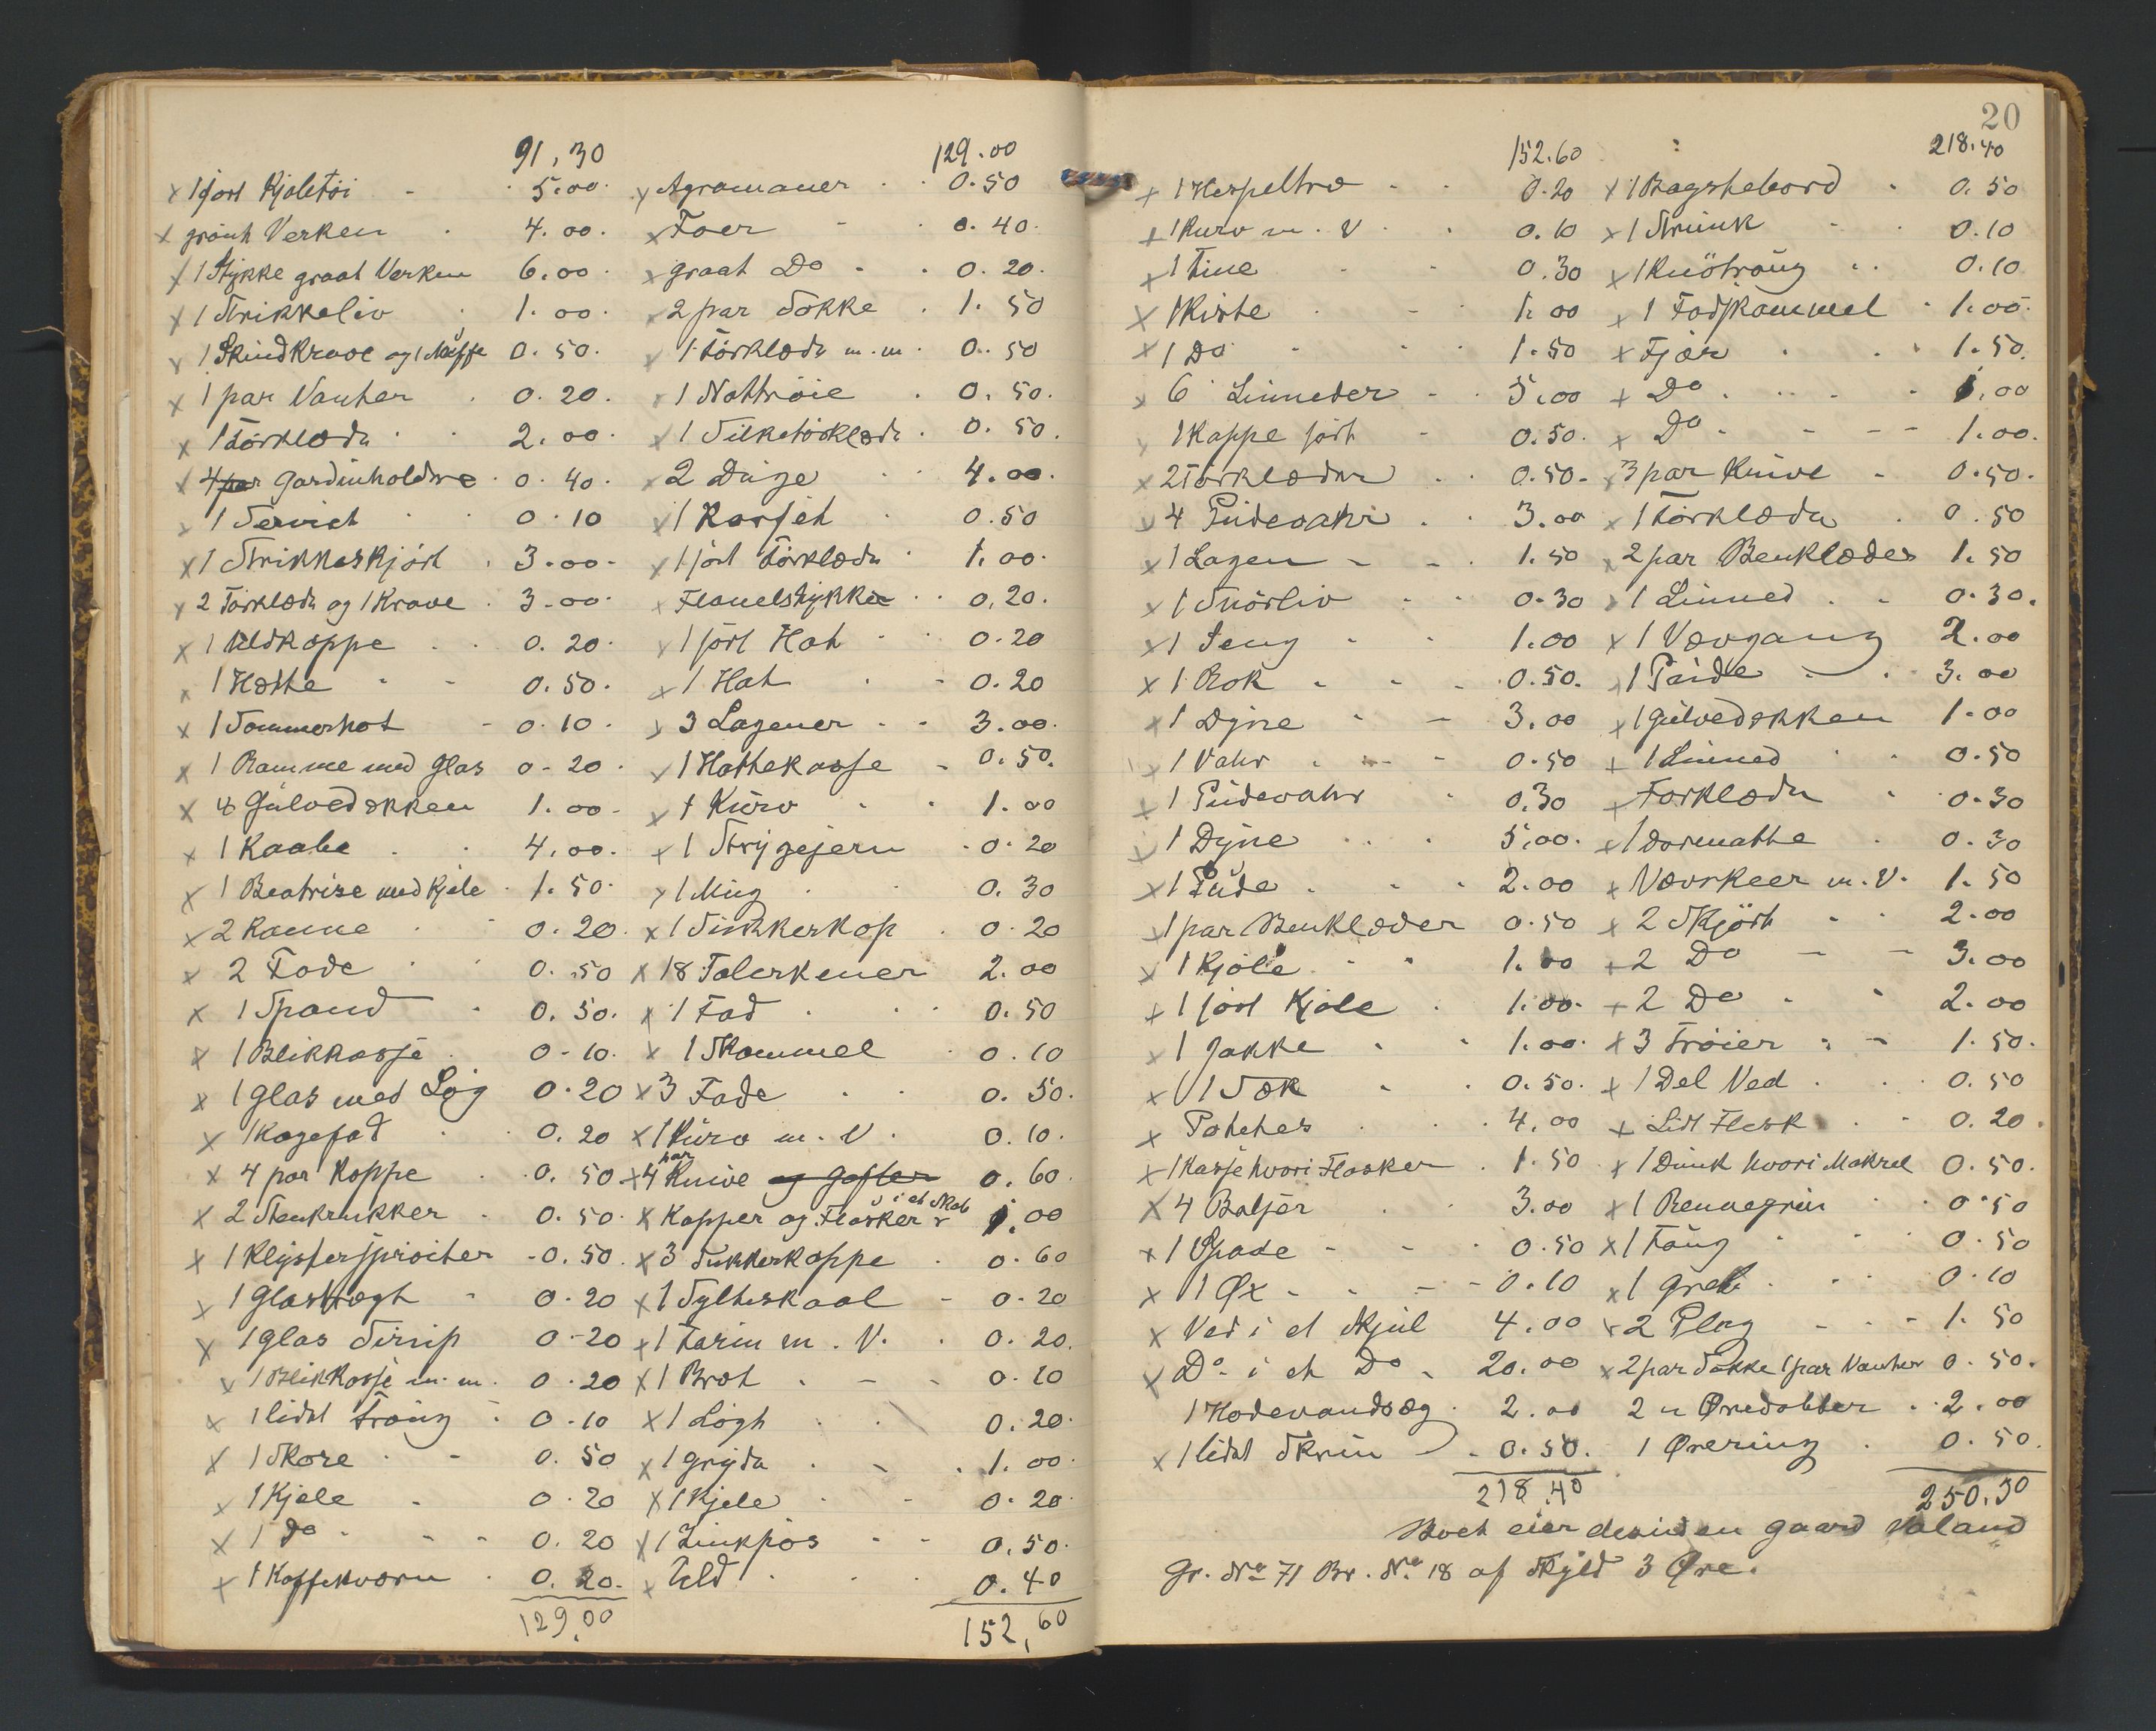 91,30
1 sort Kjoletöi 5.00
grönt Verken 4.00
1 Stykke graat Verken 6.00
1 Strikkeliv 1.00
1 Skindkrave og 1 Muffe 0.50
1 par Vanter 0.20
1 Törklæde 2.00
4 par Gardinholdere 0.40
1 Serviet 0.10
1 Strikkeskjört 3.00
2 Törklæder og 1 Krave 3.00
1 Uldkappe 0.20
1 Hætte 0.50
1 Sommerhat 0.10
1 Ramme med Glas 0.20
4 Gulvedækken 1.00
1 Kaabe 4.00
1 Beatrise med Kjole 1.50
2 Kanne 0.20
2 Fade 0.50
1 Spand 0.50
1 Blikkasse 0.10
1 Glas med Log 0.20
1 Kagefad 0.20
4 par Koppe 0.50
2 Stenkrukker 0.50
1 Klystersprøiter 0.50
1 Glas 0.20
1 Glas Sirup 0.20
1 Blikkasse m.m. 0.20
1 lidet Traug 0.10
1 Skore 0.50
1 Kjele 0.20
1 Do 0.20
1 Kaffekværn 0.20
129,00
129.00
Agramaner 0.50
Foer 0.40
graat Do 0.20
2 par Sokke 1.50
1 Törklæde m.m. 0.50
1 Nattröie 0.50
1 Silketörklæde 0.50
2 Duge 4.00
1 Korset 0.50
1 sort Törklæde 1.00
Flanelstykker 0.20
1 sort Hat 0.20
1 Hat 0.20
3 Lagener 3.00
1 Hattekasse 0.50
1 Kurv 1.00
1 Strygejern 0.20
1 Mug 0.30
1 Sukkerkop 0.20
18 Talerkener 2.00
1 Fad 0.50
1 Skammel 0.10
3 Fade 0.50
1 Kurv m.V. 0.10
4 par Knive og Gafler 0.60
Kopper og Flasker i et Skab 1.00
3 Sukkerkoppe 0.60
1 Sylteskaal 0.20
1 Farin m.V. 0.20
1 Bræt 0.10
1 Lögt 0.20
1 Gryde 1.00
1 Kjele 0.20
1 Zinkpøs 0.50
Uld 0.40
152,60
20
152.60
1 Hespeltræ 0.20
1 Kurv m.V. 0.10
1 Tine 0.30
1 Kiste 1.00
1 Do 1.50
6 Linneder 5.00
1 Kappe sort 0.50
2 Törklæder 0.50
4 Pudevahr 3.00
1 Lagen 1.50
1 Snörliv 0.30
1 Seng 1.00
1 Rok 0.50
1 Dyne 3.00
1 Vahr 0.50
1 Pudevahr 0.30
1 Dyne 5.00
1 Pude 2.00
1 par Benklæder 0.50
1 Kjole 1.00
1 sort Kjole 1.00
1 Jakke 1.00
1 Sæk 0.50
Poteter 4.00
1 Kasse hvori Flasker 1.50
4 Baljer 3.00
1 Spade 0.50
1 Øx 0.10
Ved i et Skjul 4.00
Do i et Do 20.00
1 Hodevandsæg 2.00
1 lidet Skrin 0.50
218.40
218.40
1 Bagstebord 0.50
1 Strunk 0.10
1 Knötraug 0.10
1 Fodskammel 1.00
Fjær 1.50
Do 1.00
Do 1.00
3 par Knive 0.50
1 Törklæde 0.50
2 par Benklæder 1.50
1 Linned 0.30
1 Vævgang 2.00
1 Pude 3.00
1 Gulvedækken 1.00
1 Linned 0.50
Forklæde 0.30
1 Dormatte 0.30
Vævskeer m.V. 1.50
2 Skjört 2.00
2 Do 3.00
2 Do 2.00
3 Tröier 1.50
1 Del Ved 0.50
Lidt Flesk 0.20
1 Dunk hvori Makrel 0.50
1 0.50
1 Tang 0.50
1 Greb 0.10
2 Plag 1.50
2 par Sokke 1 par Vanter 0.50
2 u Øredobber 2.00
1 Ørering 0.50
250.30
Boet eier desuden gaard Valand
Gr. No 71 Br. No 18 af Skyld 3 Øre.